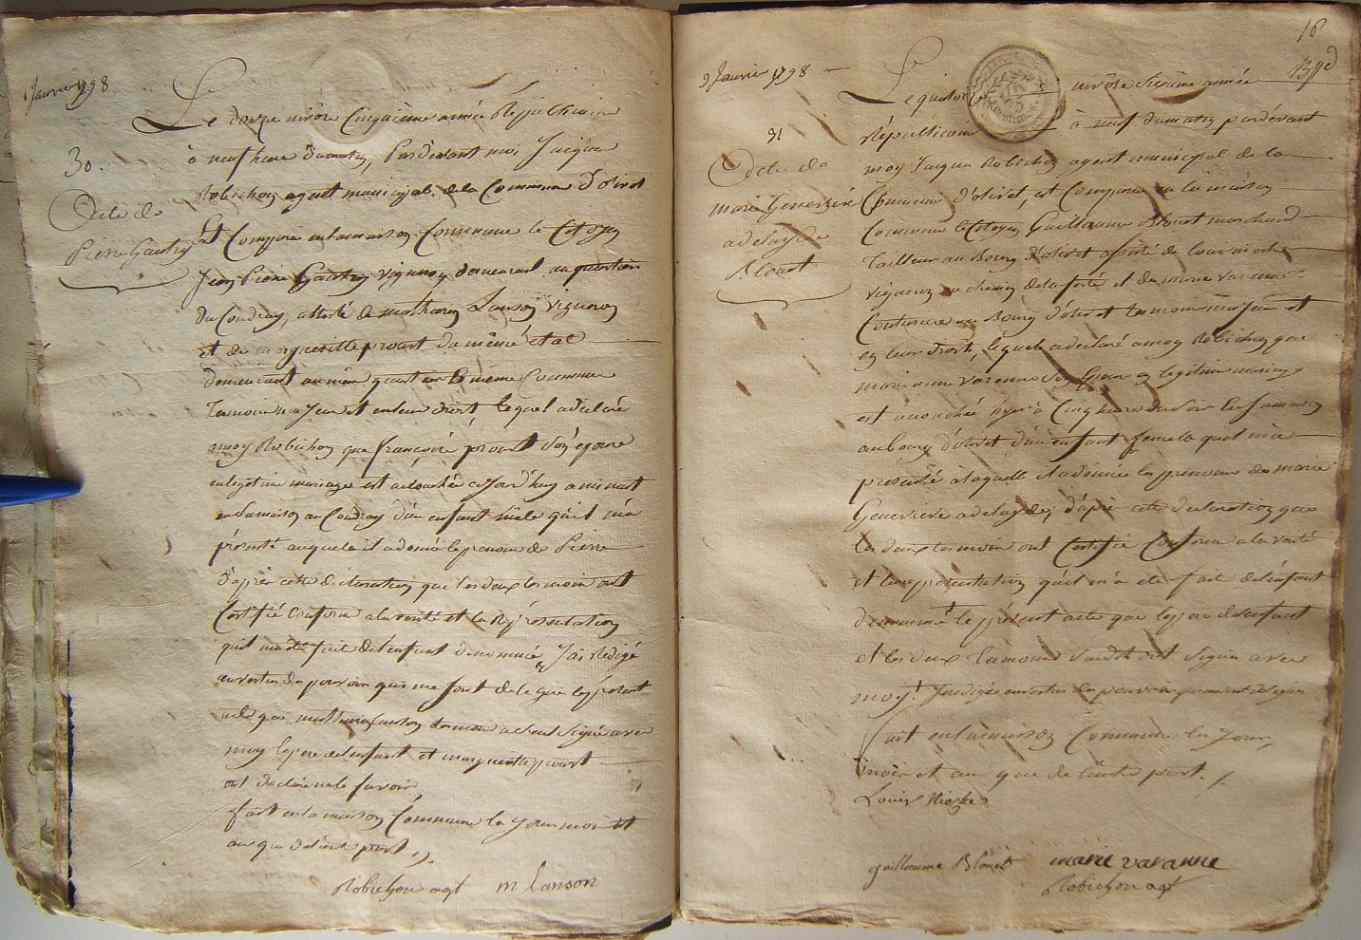 Janvier 1798
30.
Acte de
Pierre Gautry
Le douze nivôse Cinquième année Républicaine
à neuf heure du matin, Pardevant moi Jacque
Robichon agent municipal de la Commune d'olivet
Est Comparu en la maison Commune le Citoyen
Jean Pierre Gautry vigneron demeurant au quartier
du Coudray, assisté de mathurin Lanson vigneron
et de margueritte provost du même état
demeurant au même quartier même Commune
Temoins majeur et en leur droit lequel a déclaré
moy Robichon que françoise provost son épouse
en legitime mariage est accouchée aujourd'huy a minuit
en sa maison au Coudray d'un enfant mâle qu'il m'a
présenté auquel il a donné le prenom de Pierre
D'après cette déclaration que les deux temoin ont
Certifié Conforme a la verité et la Représentation
qu'il m'a été faite de l'enfant denommé, J'ai Rédigé
en vertu du pouvoir qui me sont délégué le présent
acte que mathurin Lanson temoin a seul Signé avec
moy le pere de l'enfant et marguerite provost
ont déclaré ne le savoir
fait en la maison Commune les jour mois et
an que d'autre part
Robichon agt m Lanson
16
9 Janvier 1798
31
Acte de
marie Geneviève
adelayde
Blonet
Le nivôse Sixième année
Républicaine à neuf du matin pardevant
moy Jaque Robichon agent municipal de la
Commune d'olivet, est Comparu en la maison
Commune le Citoyen Guillaume Blonet marchand
Tailleur au Bourg d'olivet assisté de Louis
vigneron au chemin de la ferté et de marie varenne
Couturiere au Bourg d'olivet temoins majeur et
en leur Droit, lequel a déclaré a moy Robichon que
marie anne varenne Son Epouse en legitime mariage
est accouchée hyer à Cinq heure du soir en sa maison
au bourg d'olivet d'un enfant femelle quil m'a
presenté à laquelle il a donné les prenoms de marie
Geneviève adelayde, d'après cette declaration que
les deux temoin ont Certifié Conforme a la verité
et la representation qu'il m'a été fait de l'enfant
denommé le présent acte que le pere de l'enfant
et les deux temoins Susdit ont Signé avec
moy. Redigé en vertu du pouvoir
fait en la maison Commune les jour,
mois et an que de l'autre part.
Louis
guillaume Blonet marie varanne
Robichon agt